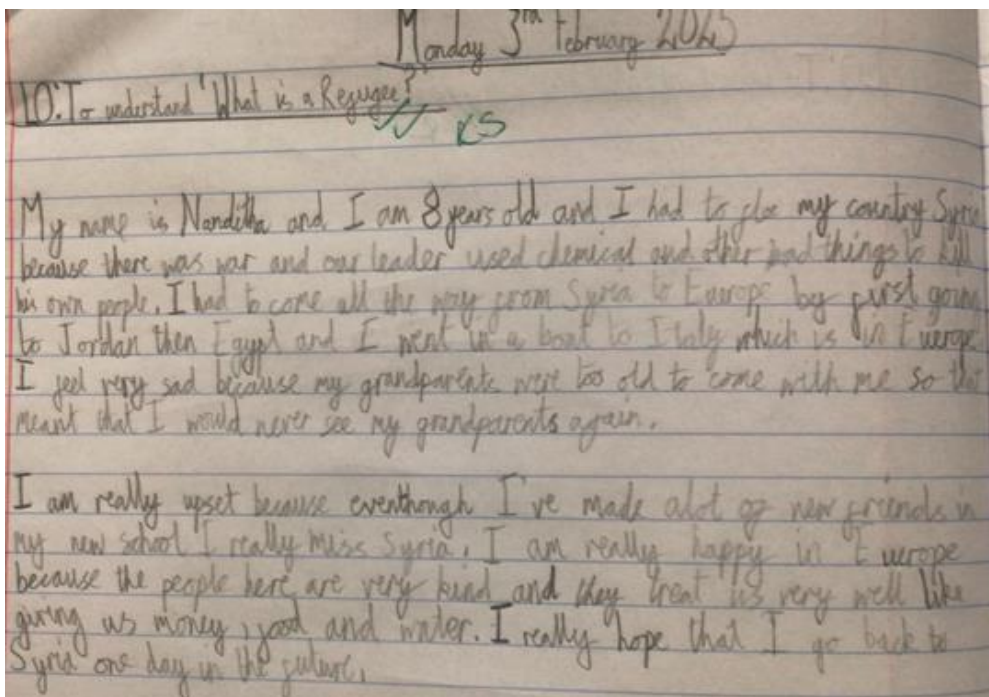 Monday 3rd February 2025
LO: To understand 'What is a Refugee?'
KS
My name is Nanditha and I am 8 years old and I had to flee my country Syria
because there was war and our leader used chemical and other bad things to kill
his own people. I had to come all the way from Syria to Euerope by first going
to Jordan then Egypt and I went in a boat to Italy which is in Euerope
I feel very sad because my grandparents were too old to come with me so that
meant that I would never see my grandparents again.
I am really upset because eventhough I've made alot of new friends in
my new school I really miss Syria. I am really happy in Euerope
because the people here are very kind and they treat us very well like
giving us money, food and water. I really hope that I go back to
Syria one day in the future.